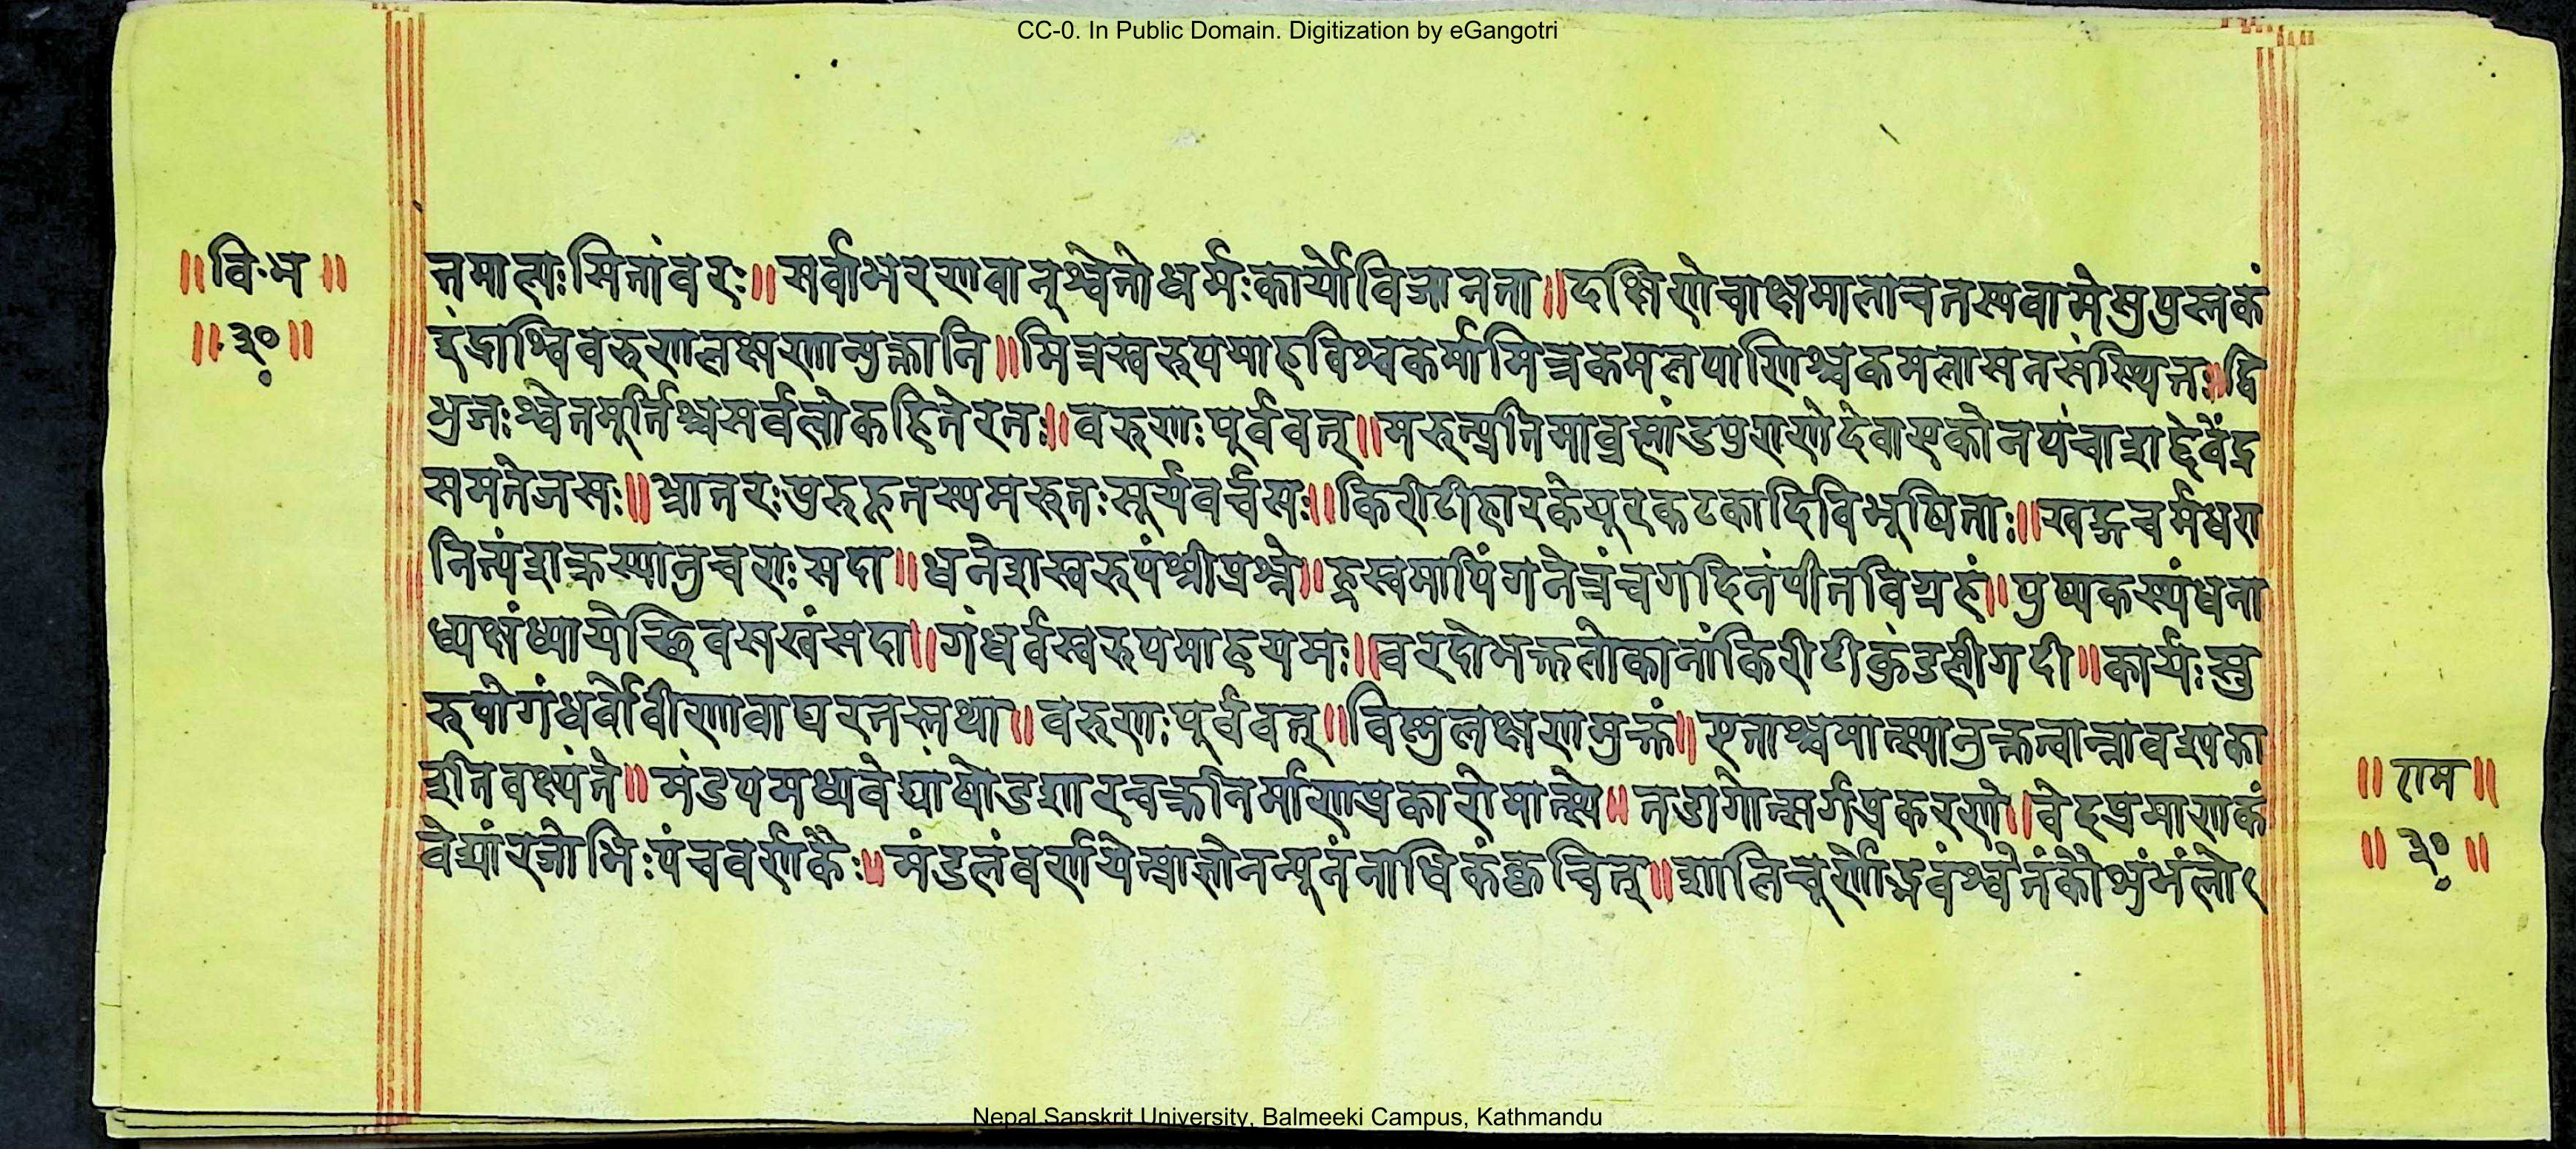 CC-0. In Public Domain. Digitization by eGangotri
॥वि॰भ॥
॥३०॥
तमाल्यः सितांबरः॥ सर्वाभरणवान्श्वेतो धर्मः कार्यो विजानता॥ दक्षिणे चाक्षमाला च तस्य वामे सुपुस्तकं
इंद्राश्विवरुणलक्षणान्युक्तानि॥ मित्रस्वरुपमाह विश्वकर्मा मित्रकमलपाणिश्च कमलासनसंस्थितः॥ द्वि
भुजः श्वेतमूर्तिश्च सर्वलोकहितेरतः॥ वरुणः पूर्ववत्॥ मरुत्प्रतिमा ब्रह्मांडपुराणे देवा एकोनपंचाशद्देवेंद्र
समतेजसः॥ भ्रातरः पुरुहूतस्य मरुतः सूर्यवर्चसः॥ किरीटीहारकेयूरकटकादिविभूषिताः॥ खड्गचर्मधरा
नित्यं शक्रस्यानुचराः सदा॥ धनेशस्वरुपं श्रीप्रश्ने॥ ह्रस्वमापिंगनेत्रं च गदिनं पीतविग्रहं॥ पुष्पकस्थं धना
ध्यक्षं ध्यायेच्छिवसखं सदा॥ गंधर्वस्वरुपमाह यमः॥ वरदो भक्तलोकानां किरीटी कुंडली गदी॥ कार्यः सु
रुपो गंधर्वो वीणावाद्यरतस्तथा॥ वरुणः पूर्ववत्॥ विष्णुलक्षणमुक्तं॥ एताश्च मात्स्यानुक्तत्वान्नावश्यका
इति वक्ष्यंते॥ मंडपमध्यवेद्यां षोडशारचक्रनिर्माणप्रकारो मात्स्ये॥ तडागोत्सर्गप्रकरणे॥ वेदप्रमाणकं
वेद्यां रजोभिः पंचवर्णकैः॥ मंडलं वर्णयेत्प्राज्ञो न न्यूनं नाधिकं क्वचित्॥ शालिचूर्णोद्भवं श्वेतं कौ
॥राम॥
॥३०॥
Nepal Sanskrit University, Balmeeki Campus, Kathmandu